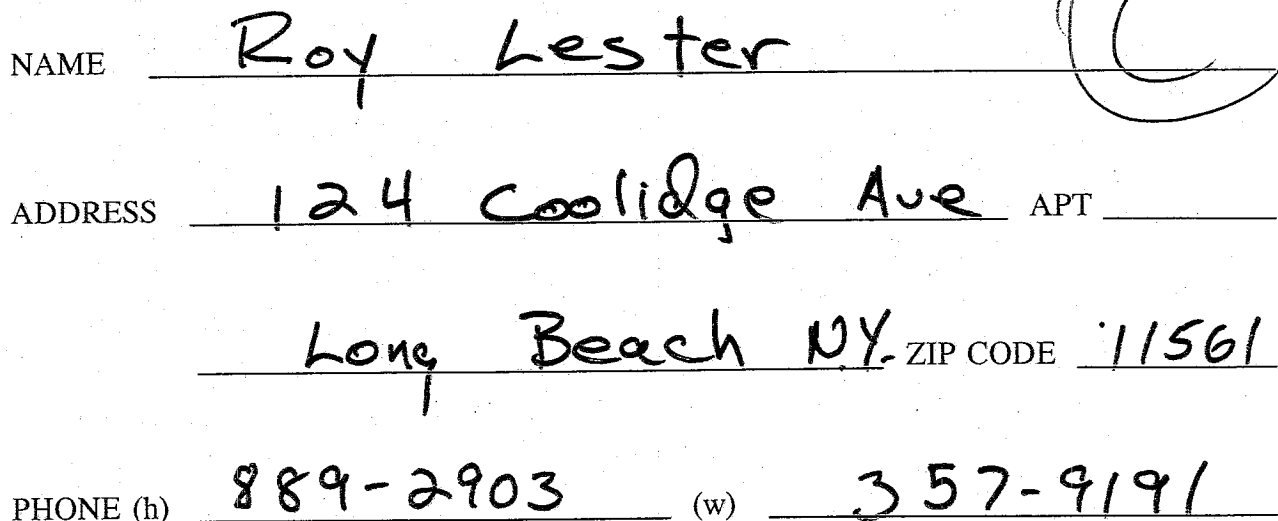 NAME Roy Lester
ADDRESS 124 Coolidge Ave APT
Long Beach NY. ZIP CODE 11561
PHONE (h) 889-2903 (w) 357-9191